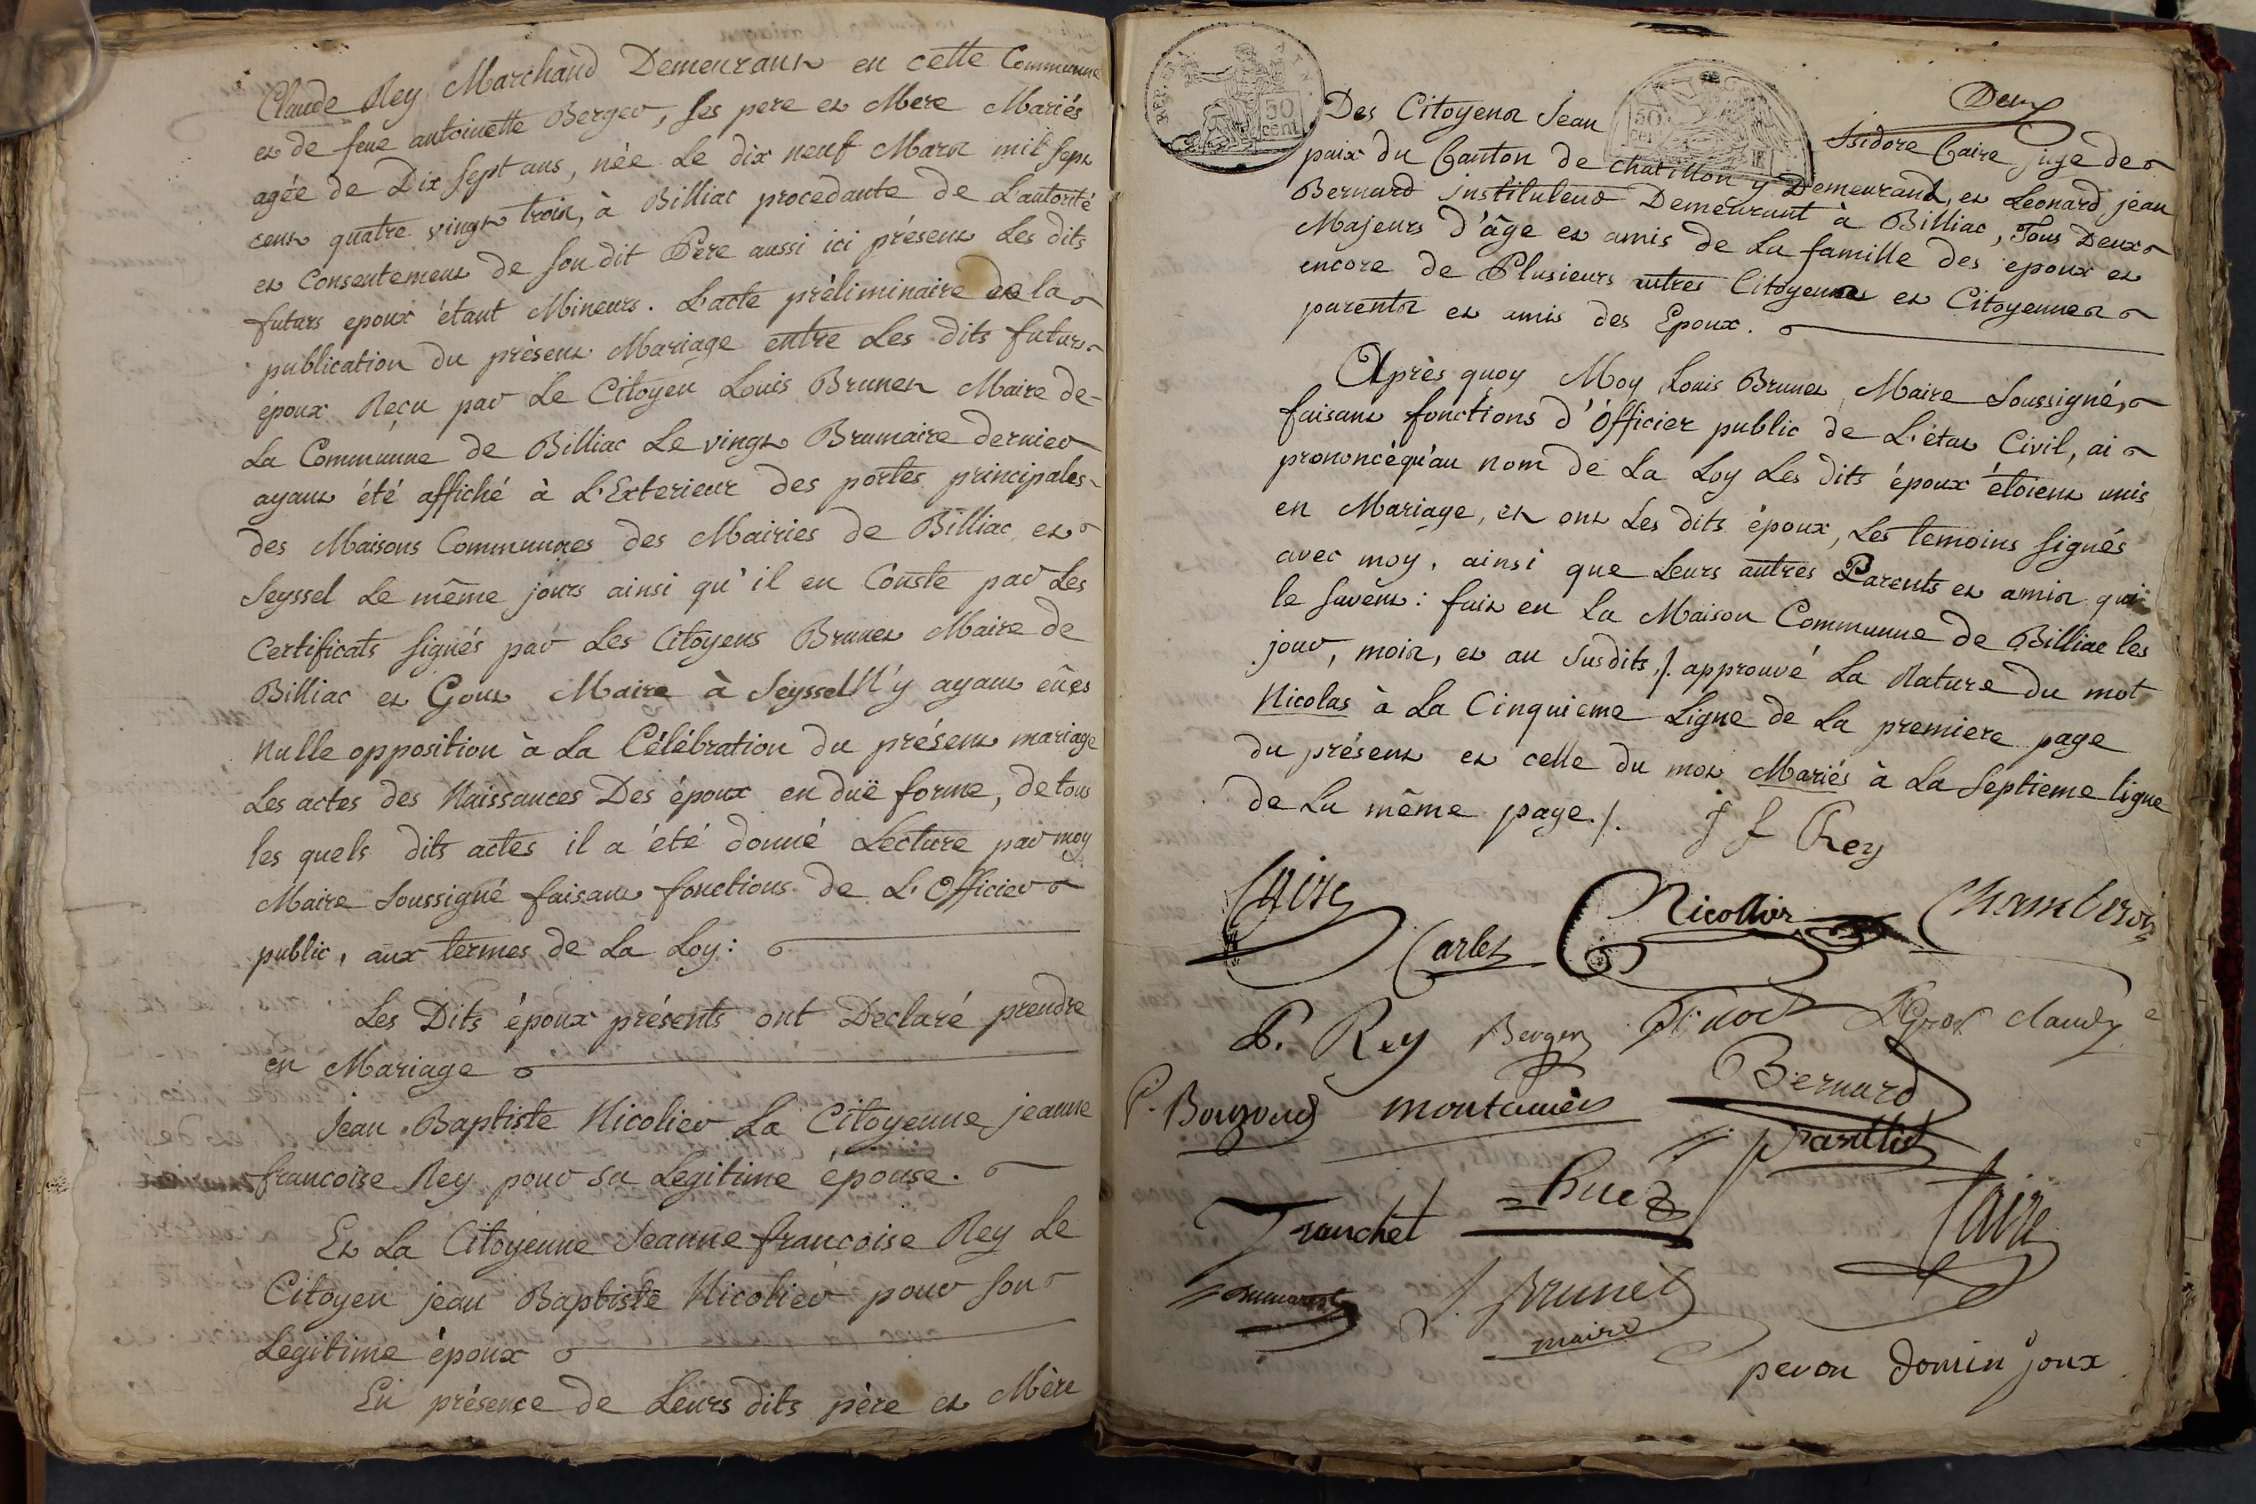 Claude Rey Marchand Demeurant en cette Commune
et de feue antoinette Berger, ses pere et Mere Mariés
agée de Dix sept ans, née Le dix neuf Mars mil sept
cent quatre vingt trois, à Billiac procedante de L'autorité
et Consentement de son dit Père aussi ici présent Les dits
futurs epoux étant Mineurs. L'acte préliminaire de la
publication du présent Mariage entre Les dits futurs
époux Reçu par Le Citoyen Louis Brunet Maire de
La Commune de Billiac Le vingt Brumaire dernier
ayant été affiché à L'Exterieur des portes principales
des Maisons Communnes des Mairies de Billiac et
Seyssel Le même jours ainsi qu'il en Conste par Les
Certificats signés par Les Citoyens Brunet Maire de
Billiac et Gout Maire à Seyssel N'y ayant eües
Nulle opposition à La Célébration du présent mariage
Les actes des Naissances Des époux en düe forme, de tous
les quels dits actes il a été donné Lecture par moy
Maire Soussigné faisant fonctions de L'Officier
public, aux termes de La Loy:
Les Dits époux présents ont Declaré prendre
en Mariage
Jean Baptiste Nicolier La Citoyenne jeanne
francoise Rey pour sa Legitime épouse.
Et La Citoyenne Jeanne francoise Rey Le
Citoyen jean Baptiste Nicolier pour son
Legitime époux
En présence de Leurs dits père et Mère
50
cent
50
cent
Deux
Des Citoyens Jean Isidore Caire juge de
paix du Canton de Chatillon y Demeurand, et Leonard jean
Bernard instituteur Demeurant à Billiac, Tous Deux
Majeurs d'âge et amis de La famille des epoux et
encore de Plusieurs autres Citoyennes et Citoyennes
parents et amis des Epoux.
Après quoy Moy Louis Brunet Maire Soussigné,
faisant fonctions d'Officier public de L'état Civil, ai
prononcé qu'au nom de La Loy Les dits époux étoient unis
en Mariage, et ont Les dits époux, Les temoins signés
avec moy, ainsi que Leurs autres Parents et amis qui
le savent: fait en La Maison Communne de Billiac les
jour, mois, et an Susdits ./. approuvé La Rature du mot
Nicolas à La Cinquieme Ligne de La premiere page
du présent et celle du mot Mariés à La Septieme ligne
de La même page./.
j f Rey
Caire
Carlet
Nicollier
P. Rey
Berger
Claudy
Bernard
Tranchet
Caire
Brunet
maire